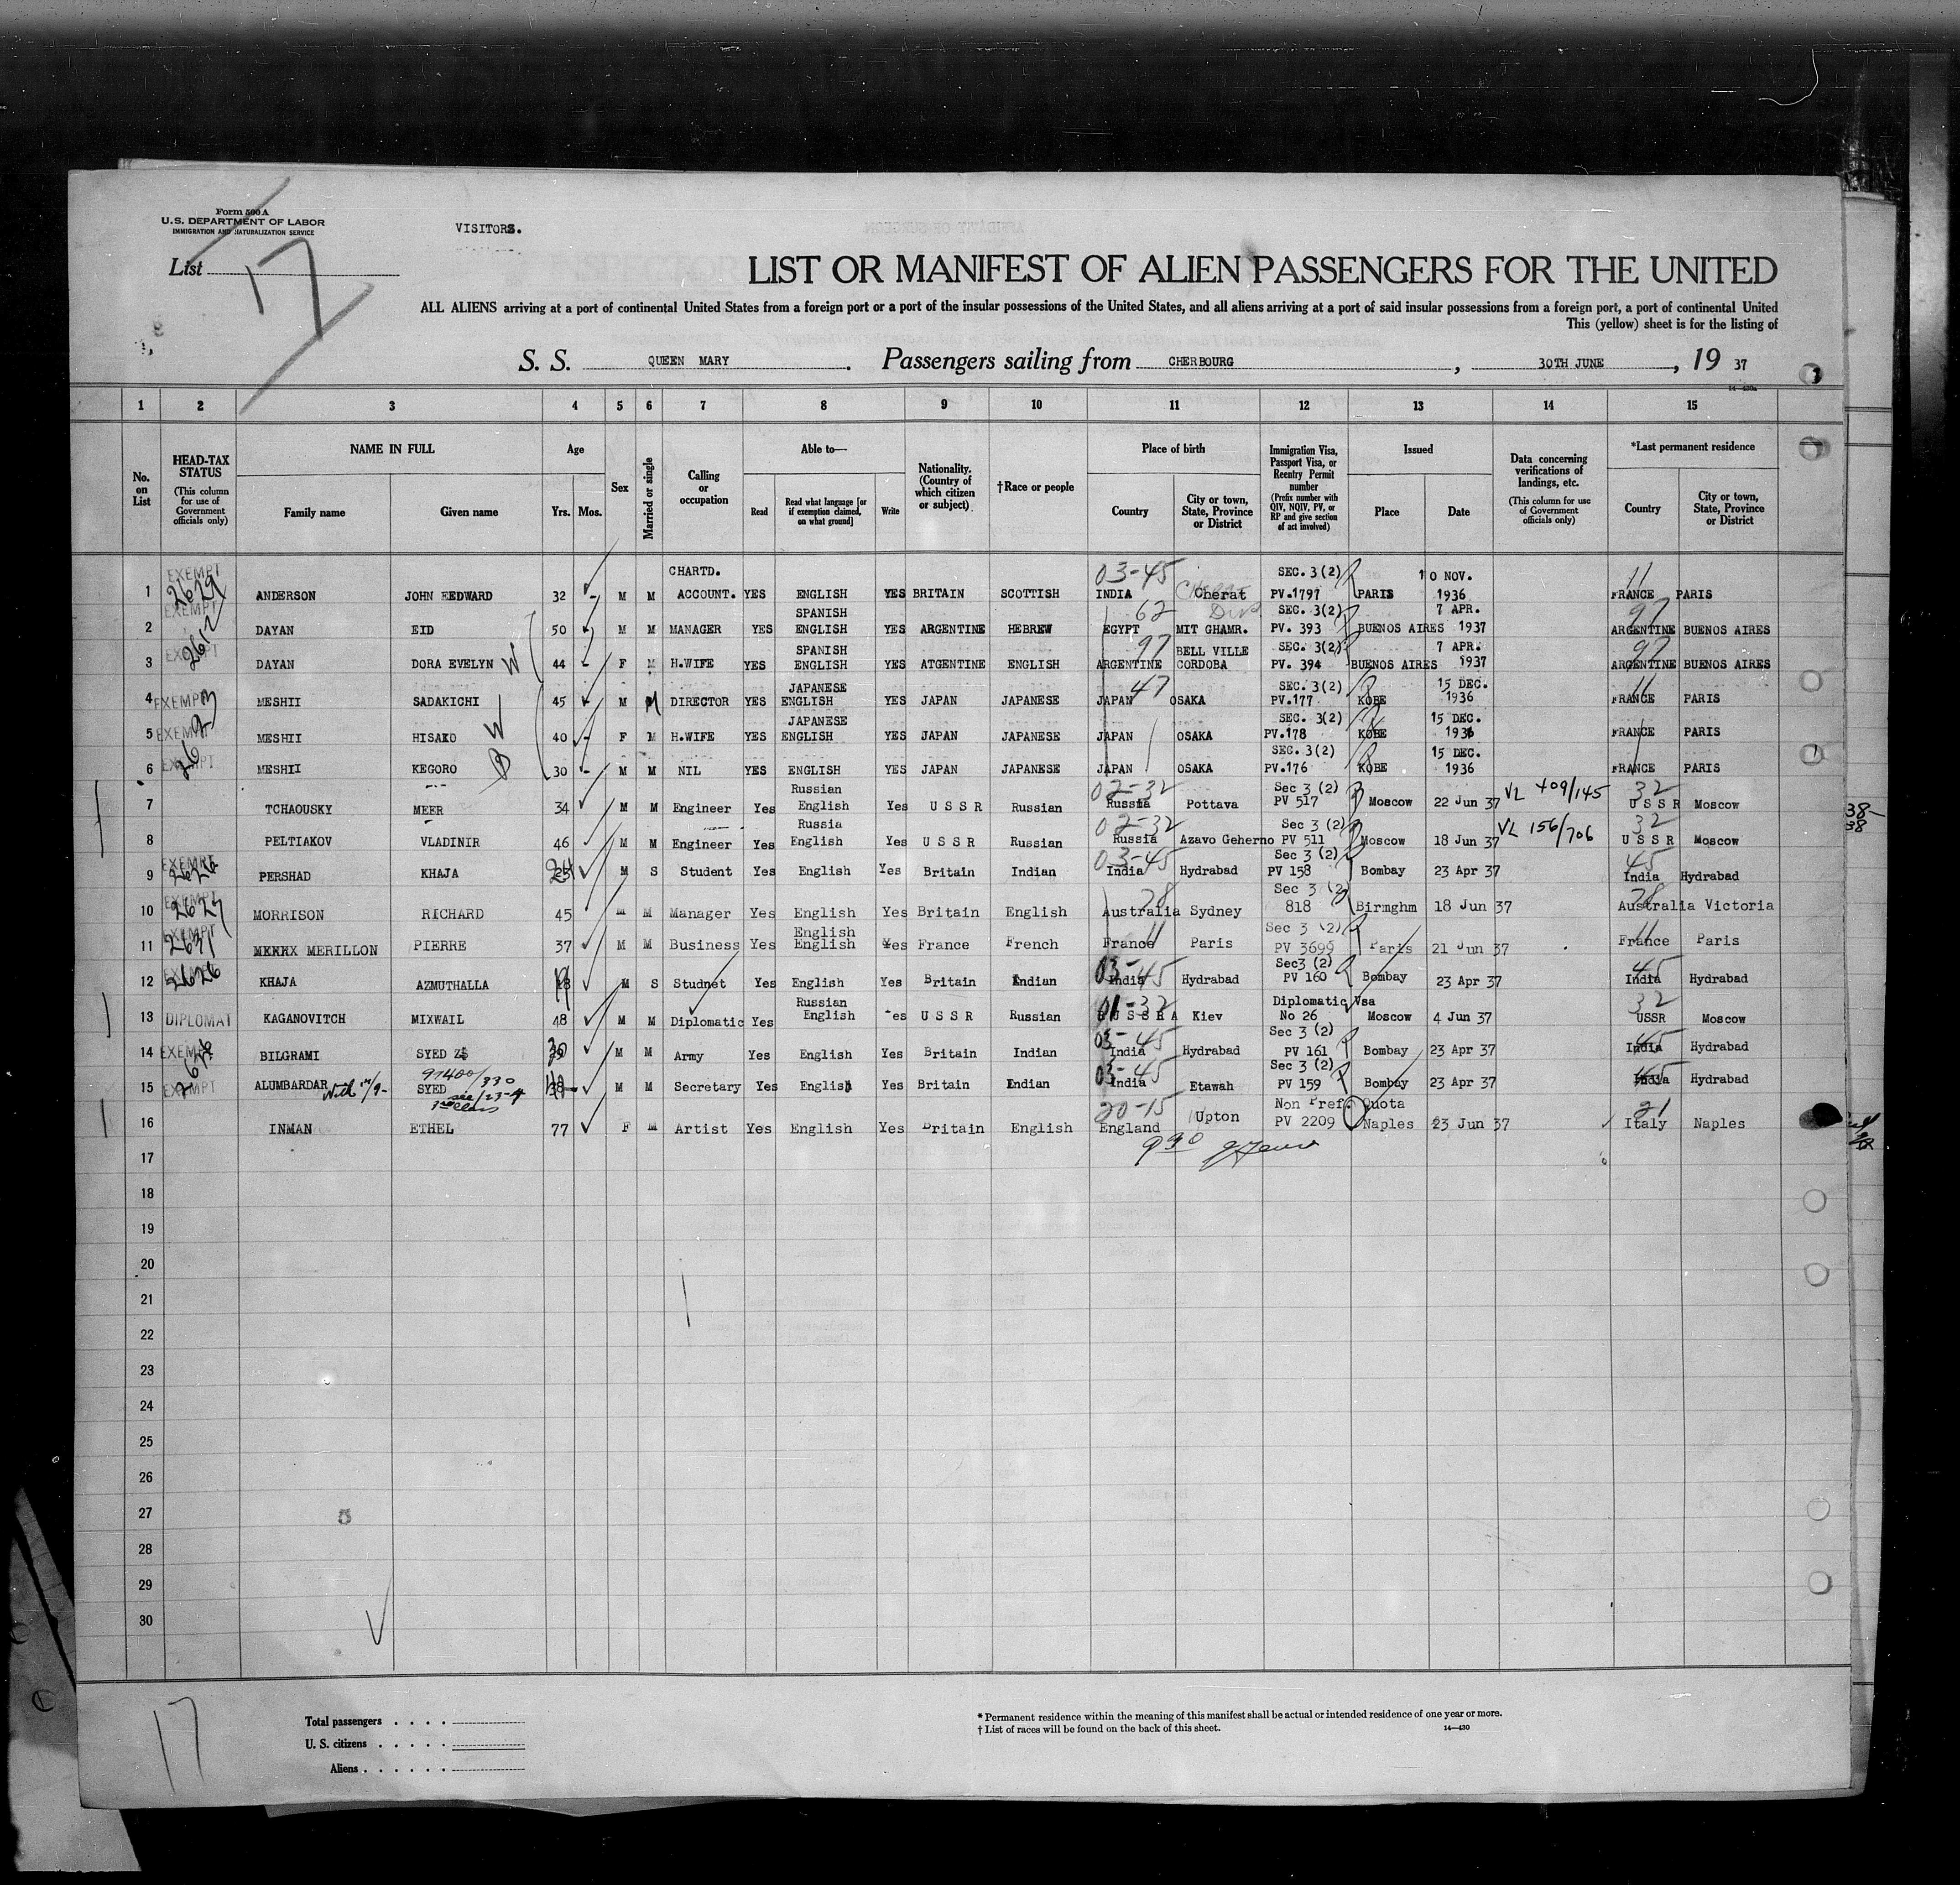 Form 500 A
U.S. DEPARTMENT OF LABOR
IMMIGRATION AND NATURALIZATION SERVICE
VISITORS.
List 17
LIST OR MANIFEST OF ALIEN PASSENGERS FOR THE UNITED
ALL ALIENS arriving at a port of continental United States from a foreign port or a port of the insular possessions of the United States, and all aliens arriving at a port of said insular possessions from a foreign port, a port of continental United
This (yellow) sheet is for the listing of
S. S. QUEEN MARY. Passengers sailing from CHERBOURG, 30TH JUNE, 19 37
1 2 3 4 5 6 7 8 9 10 11 12 13 14 15
No. on List
HEAD-TAX STATUS (This column for use of Government officials only)
NAME IN FULL Family name Given name
Age Yrs. Mos.
Sex
Married or single
Calling or occupation
Able to— Read Read what language [or if exemption claimed, on what ground] Write
Nationality. (Country of which citizen or subject)
†Race or people
Place of birth Country City or town, State, Province or District
Immigration Visa, Passport Visa, or Reentry Permit number (Prefix number with QIV, NQIV, PV, or RP and give section of act involved)
Issued Place Date
Data concerning verifications of landings, etc. (This column for use of Government officials only)
*Last permanent residence Country City or town, State, Province or District
EXEMPT CHARTD. 03-45 SEC. 3(2) 10 NOV. 11
1 2629 ANDERSON JOHN EEDWARD 32 - M M ACCOUNT. YES ENGLISH YES BRITAIN SCOTTISH INDIA Cherat PV.1797 PARIS 1936 FRANCE PARIS
EXEMPT SPANISH 62 SEC. 3(2) 7 APR. 97
2 DAYAN EID 50 - M M MANAGER YES ENGLISH YES ARGENTINE HEBREW EGYPT MIT GHAMR. PV. 393 BUENOS AIRES 1937 ARGENTINE BUENOS AIRES
EXEMPT SPANISH 97 BELL VILLE SEC. 3(2) 7 APR. 97
3 DAYAN DORA EVELYN W 44 - F M H.WIFE YES ENGLISH YES ATGENTINE ENGLISH ARGENTINE CORDOBA PV. 394 BUENOS AIRES 1937 ARGENTINE BUENOS AIRES
JAPANESE 47 SEC. 3(2) 15 DEC. 11
4 EXEMPT MESHII SADAKICHI 45 - M M DIRECTOR YES ENGLISH YES JAPAN JAPANESE JAPAN OSAKA PV.177 KOBE 1936 FRANCE PARIS
JAPANESE SEC. 3(2) 15 DEC.
5 EXEMPT 2623 MESHII HISAKO W 40 - F M H.WIFE YES ENGLISH YES JAPAN JAPANESE JAPAN OSAKA PV.178 KOBE 1936 FRANCE PARIS
SEC. 3(2) 15 DEC.
6 EXEMPT MESHII KEGORO 30 - M M NIL YES ENGLISH YES JAPAN JAPANESE JAPAN OSAKA PV.176 KOBE 1936 FRANCE PARIS
Russian 02-32 Sec 3 (2) VL 409/145 32
7 TCHAOUSKY MEER 34 M M Engineer Yes English Yes U S S R Russian Russia Pottava PV 517 Moscow 22 Jun 37 U S S R Moscow
Russia 02-32 Sec 3 (2) VL 156/706 32
8 PELTIAKOV VLADINIR 46 M M Engineer Yes English Yes U S S R Russian Russia Azavo Geherno PV 511 Moscow 18 Jun 37 U S S R Moscow
EXEMPT 03-45 Sec 3 (2) 45
9 2626 PERSHAD KHAJA 24 M S Student Yes English Yes Britain Indian India Hydrabad PV 158 Bombay 23 Apr 37 India Hydrabad
EXEMPT 78 Sec 3 (2) 78
10 2627 MORRISON RICHARD 45 M M Manager Yes English Yes Britain English Australia Sydney 818 Birmghm 18 Jun 37 Australia Victoria
EXEMPT English 11 Sec 3 (2) 11
11 2631 MERILLON PIERRE 37 M M Business Yes English Yes France French France Paris PV 3695 Paris 21 Jun 37 France Paris
03-45 Sec3 (2) 45
12 2626 KHAJA AZMUTHALLA M S Studnet Yes English Yes Britain Indian India Hydrabad PV 160 Bombay 23 Apr 37 India Hydrabad
Russian 01-32 Diplomatic Vsa 32
13 DIPLOMAT KAGANOVITCH MIXWAIL 48 M M Diplomatic Yes English Yes U S S R Russian Kiev No 26 Moscow 4 Jun 37 USSR Moscow
03-45 Sec 3 (2) 45
14 EXEMPT 2626 BILGRAMI SYED 30 M M Army Yes English Yes Britain Indian India Hydrabad PV 161 Bombay 23 Apr 37 India Hydrabad
99400/330 03-45 Sec 3 (2) 45
15 EXEMPT ALUMBARDAR SYED M M Secretary Yes English Yes Britain Indian India Etawah PV 159 Bombay 23 Apr 37 India Hydrabad
20-15 Non Pref. Quota 21
16 INMAN ETHEL 77 F M Artist Yes English Yes Britain English England Upton PV 2209 Naples 23 Jun 37 Italy Naples
17 990
18
19
20
21
22
23
24
25
26
27
28
29
30
17
Total passengers . . . .
U. S. citizens . . . . .
Aliens . . . . . .
* Permanent residence within the meaning of this manifest shall be actual or intended residence of one year or more.
† List of races will be found on the back of this sheet. 14—430